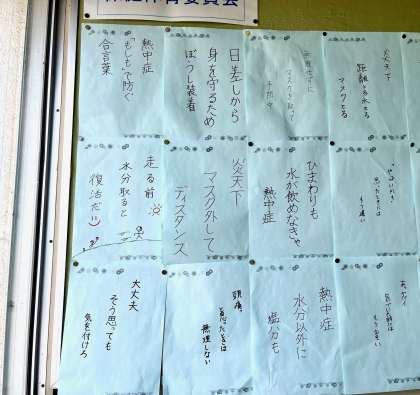 保健体育委員会
炎天下
距離を多めとる
マスクとる
マスクを取って
日差しから
身を守るため
ぼうし装着
熱中症
「もしも」で防ぐ
合言葉
ひまわりも
水が飲めなきゃ
熱中症
炎天下
マスク外して
ディスタンス
走る前
水分取ると
復活だい
もう遅い
熱中症
水分以外に
塩分も
頭痛
と思ったときは
無理しない
大丈夫
そう思っても
気を付けろ